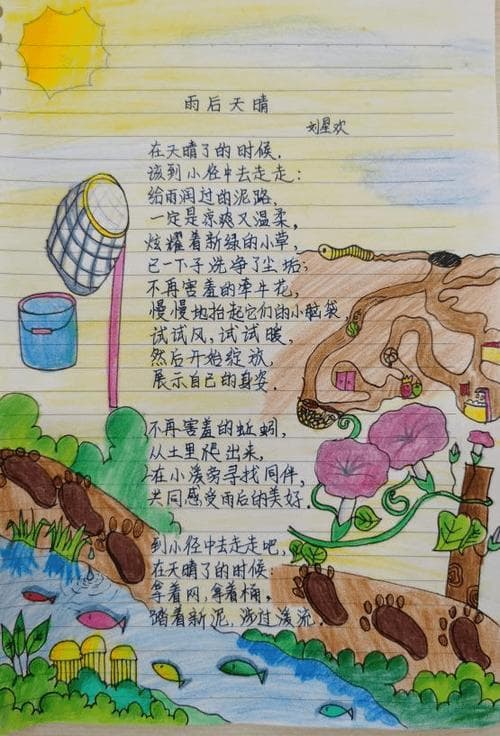 雨后天晴
刘星欢
在天晴了的时候,
该到小径中去走走:
给雨润过的泥路,
一定是凉爽又温柔,
炫耀着新绿的小草,
已一下子洗净了尘垢;
不再害羞的牵牛花,
慢慢地抬起它们的小脑袋,
试试风,试试暖,
然后开始绽放,
展示自己的身姿.
不再害羞的蚯蚓,
从土里爬出来,
在小溪旁寻找同伴,
共同感受雨后的美好.
到小径中去走走吧,
在天晴了的时候:
拿着网,拿着桶,
踏着新泥,涉过溪流.